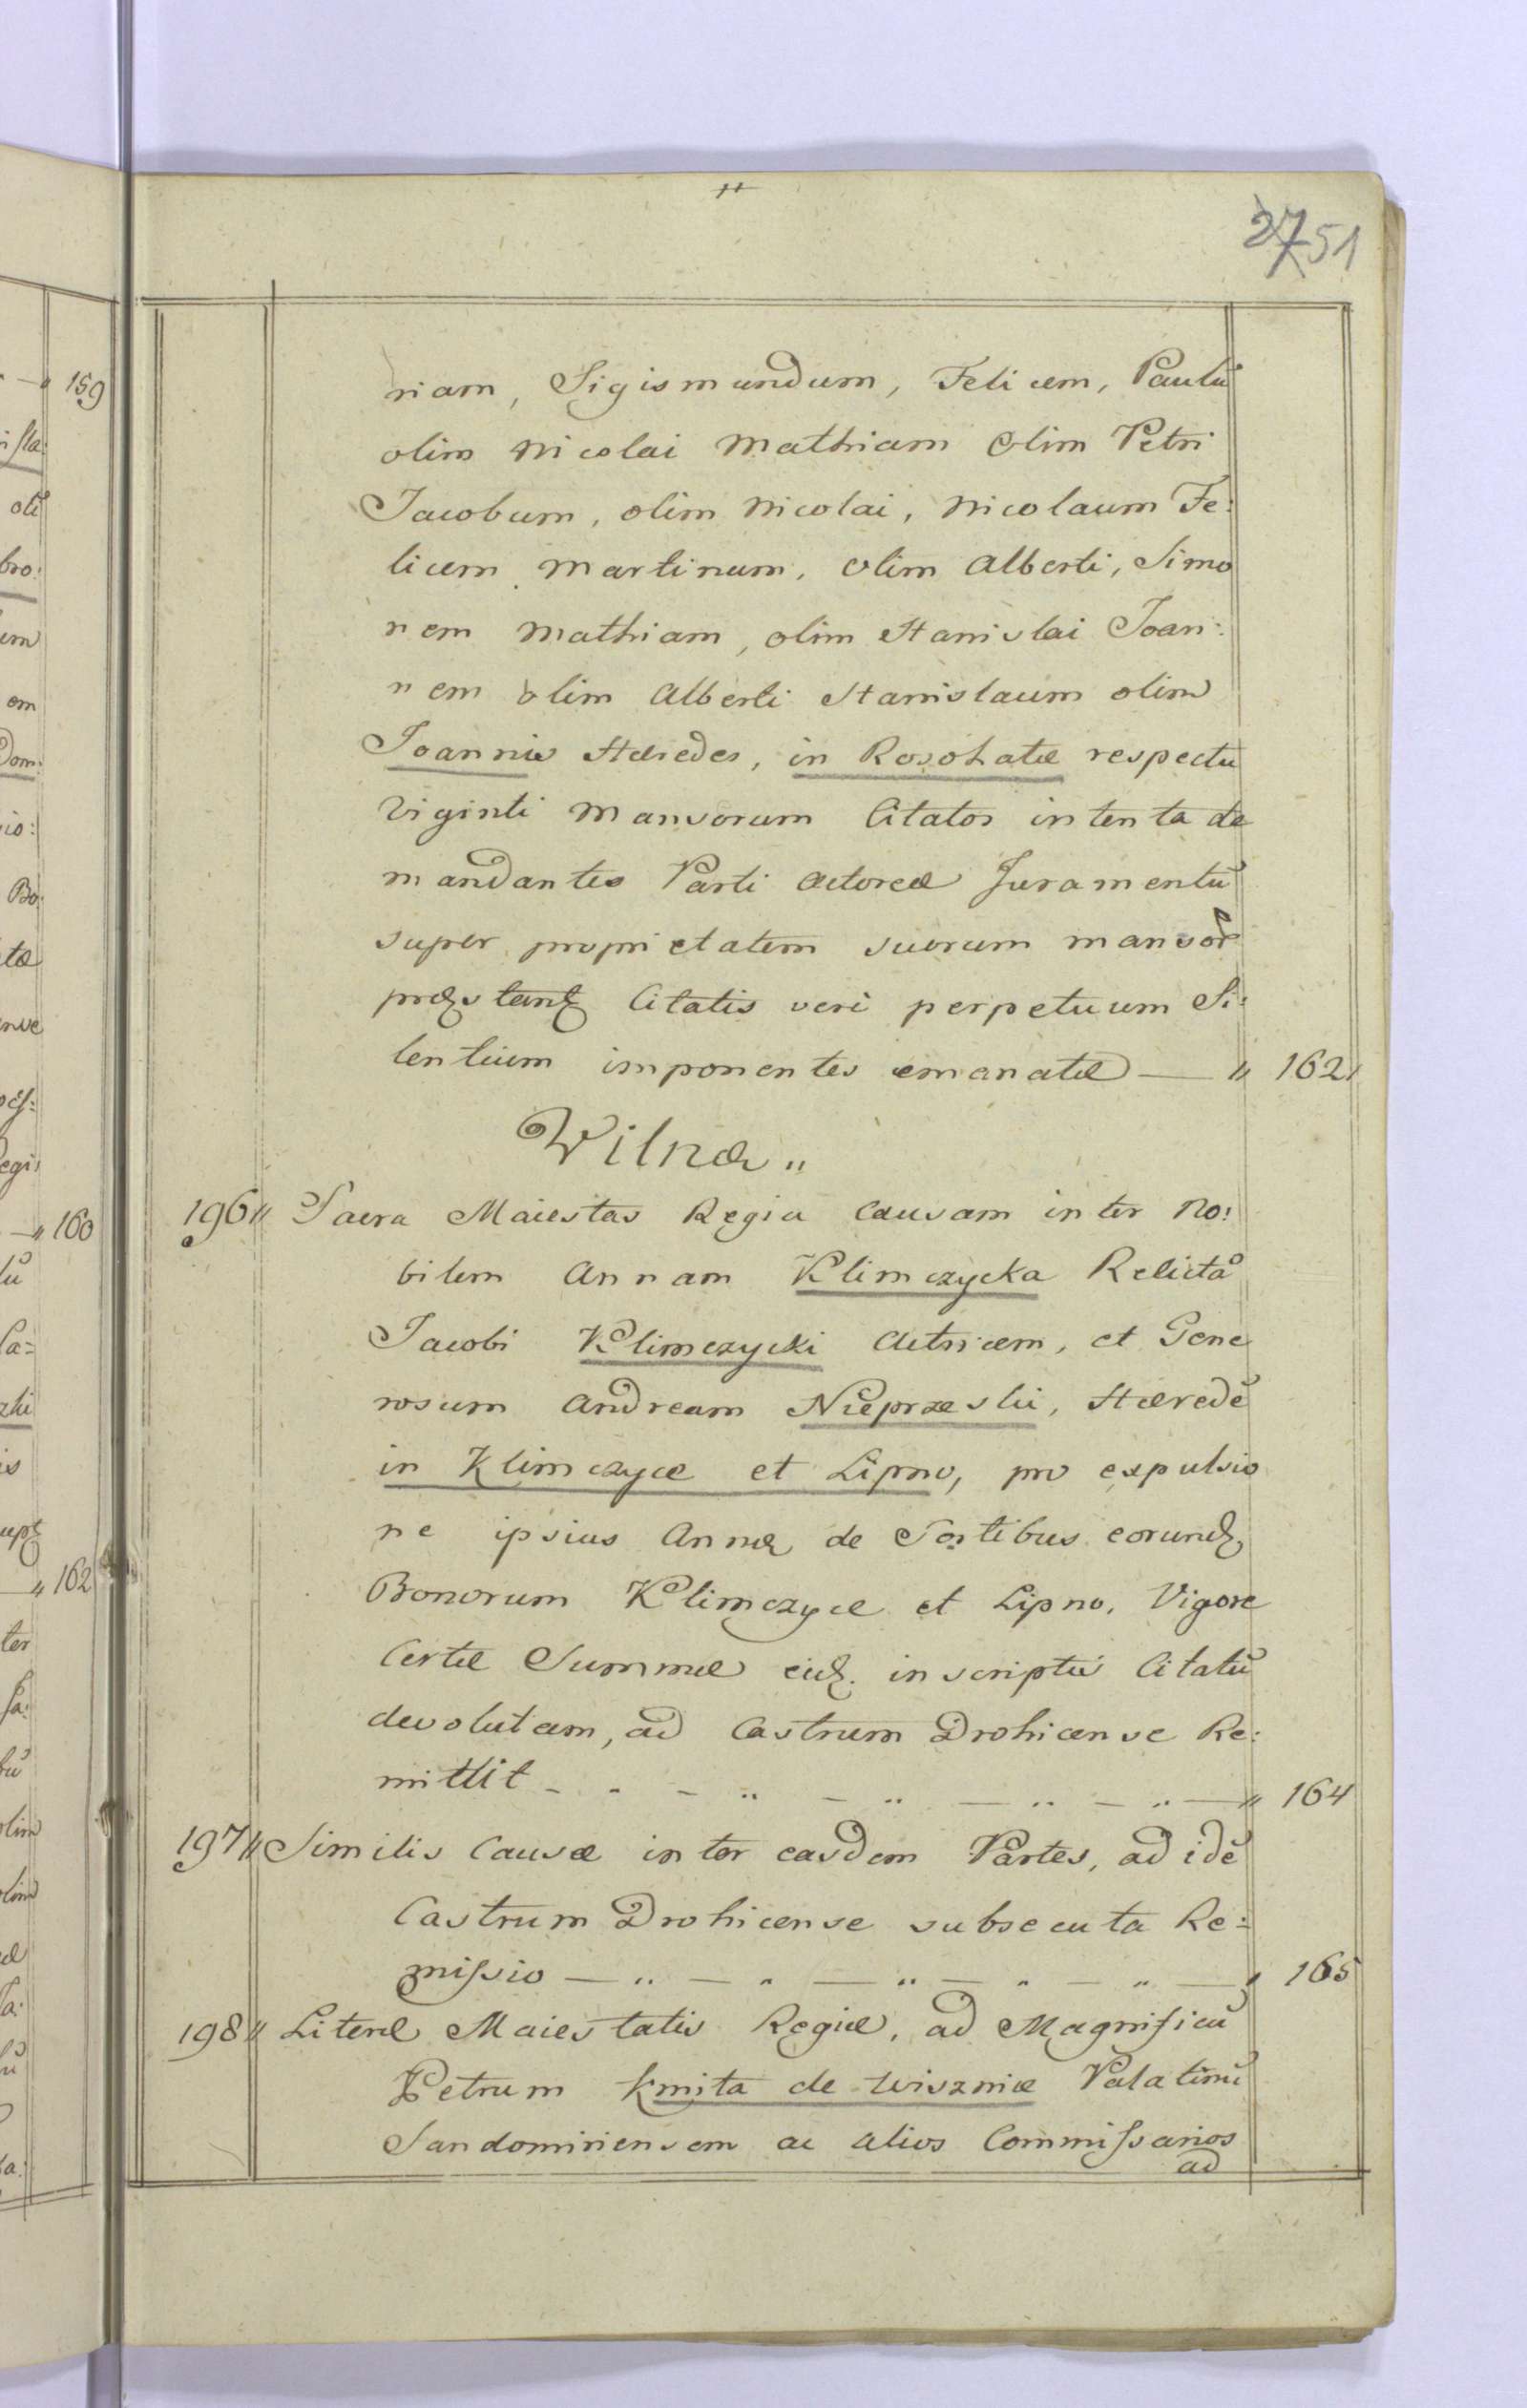 27 51
niam, Sigismundum, Felicem, Paulū
olim Nicolai Mathiam olim Petri
Jacobum, olim Nicolai, Nicolaum Fe:
licem Martinum, olim Alberti, Simo
nem Mathiam, olim Stanislai Joan:
nem olim Alberti Stanislaum olim
Joannis Hæredes, in Rosohatæ respectu
viginti Mansorum Citatos intenta de
mandantes Parti Actoreæ Juramentū
super proprietatem suorum mansor
Citatis veri perpetuum Si:
lentium imponentes emanatæ — " 162
Wilnæ "
196 " Sacra Maiestas Regia Causam inter No:
bilem Annam Klimczycka Relictā
Jacobi Klimczycki Actricem, et Gene
rosum Andream Nieprzeski, Hæredē
in Klimczyce et Lipno, pro expulsio
ne ipsius Annæ de Sortibus eorund
Bonorum Klimczyce et Lipno, Vigore
Certæ Summæ eid. inscriptū Citatū
devolutam, ad Castrum Drohicense Re:
mittit - - - " - " - " - " - " 164
197 " Similis Causæ inter easdem Partes, ad idē
Castrum Drohicense subsecuta Re:
missio - " - " - " - " - " - " 165
198 " Literæ Maiestatis Regiæ, ad Magnificū
Petrum Kmita de Wiszniæ Palatinū
Sandomiriensem ac alios Commissarios
ad
159
160
162